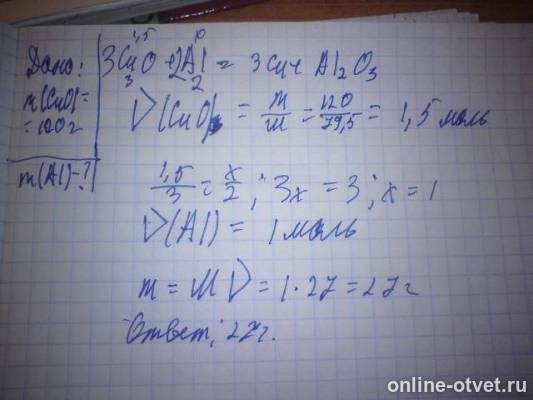 Дано:
m(CuO)=
=120г
m(Al)-?
1,5 x
3CuO + 2Al = 3Cu + Al2O3
3 2
ν(CuO) = m/M = 120/79,5 = 1,5 моль
1,5/3 = x/2 ; 3x = 3 ; x = 1
ν(Al) = 1 моль
m = Mν = 1·27 = 27г
Ответ: 27г.
online-otvet.ru